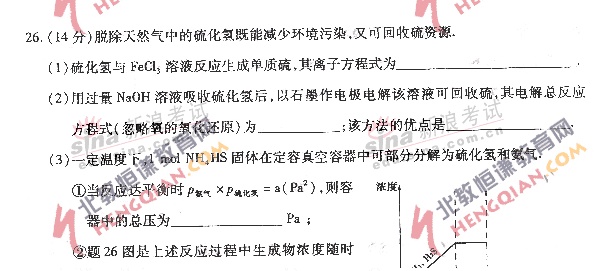 26.(14分)脱除天然气中的硫化氢既能减少环境污染,又可回收硫资源.
(1)硫化氢与FeCl₃溶液反应生成单质硫,其离子方程式为
(2)用过量NaOH溶液吸收硫化氢后,以石墨作电极电解该溶液可回收硫,其电解总反应
方程式(忽略氧的氧化还原)为;该方法的优点是
(3)一定温度下,1 mol NH₄HS固体在定容真空容器中可部分分解为硫化氢和氨气.
①当反应达平衡时p氨气×p硫化氢=a(Pa²),则容
浓度
器中的总压为 Pa;
②题26图是上述反应过程中生成物浓度随时
H₂S
sina 新浪考试
北教恒课教育网
HENGQIAN.COM